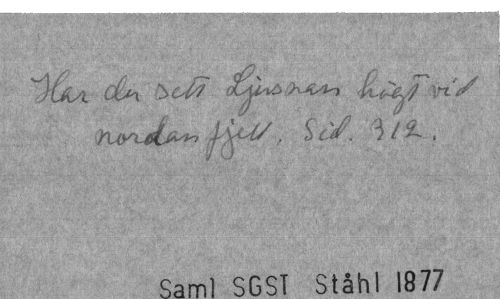 Har du sett Ljusnan högt vid
nordan fjell. Sid. 312.
Saml SGST Ståhl 1877